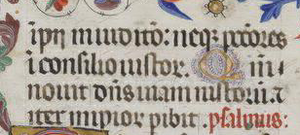 ipii in iudico: neqz pctores
i consilio iustor. Qm
nouit dns uiam iustoru. z
iter impior pibit. psalmus: